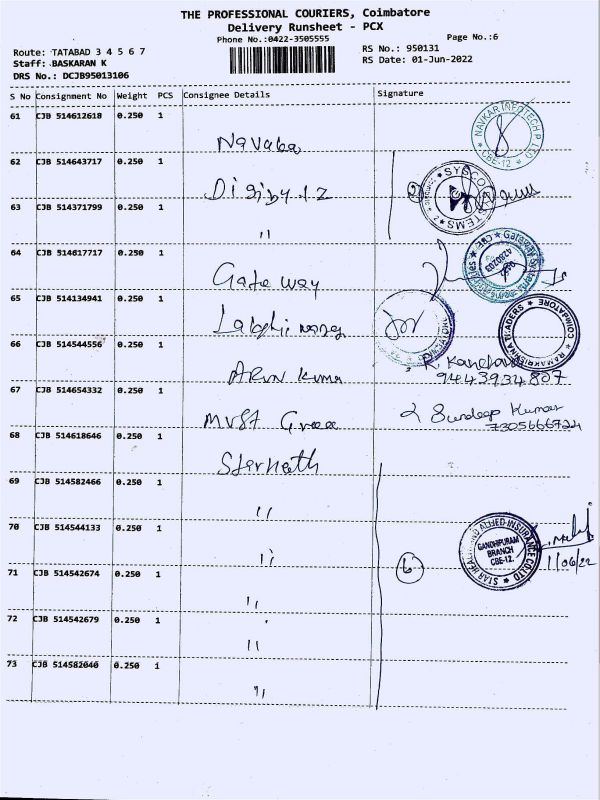 THE PROFESSIONAL COURIERS, Coimbatore
Delivery Runsheet - PCX
Phone No.:0422-3505555
Page No.:6
Route: TATABAD 3 4 5 6 7
Staff: BASKARAN K
DRS No.: DCJB95013106
RS No.: 950131
RS Date: 01-Jun-2022
S No Consignment No Weight PCS Consignee Details Signature
61 CJB 514612618 0.250 1
NAVKAR INFOTECH P LTD CBE-12
62 CJB 514643717 0.250 1
2 SYSCO SYSTEMS
63 CJB 514371799 0.250 1
"
64 CJB 514617717 0.250 1
Gate way
65 CJB 514134941 0.250 1
RAMAKRISHNA TRADERS COIMBATORE
66 CJB 514544556 0.250 1
ARUN Kuma
9443934807
67 CJB 514654332 0.250 1
Sundeep Kumar
7305666724
68 CJB 514618646 0.250 1
Starhealth
69 CJB 514582466 0.250 1
"
70 CJB 514544133 0.250 1
"
6 STAR HEALTH AND ALLIED INSURANCE CO LTD
GANDHIPURAM
BRANCH
CBE-12.
1/06/22
71 CJB 514542674 0.250 1
"
72 CJB 514542679 0.250 1
"
73 CJB 514582040 0.250 1
"